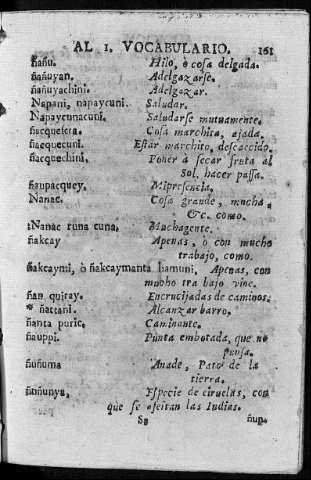 AL 1. VOCABULARIO. 161
ñañu. Hilo, ò cosa delgada.
ñañuyan. Adelgazarse.
ñañuyachini. Adelgazar.
Napani, napaycuni. Saludar.
Napaycunacuni. Saludarse mutuamente.
ñaequesca. Cosa marchita, ajada.
ñaequecuni. Estar marchito, descaecido.
ñacquechini. Poner à secar fruta al
Sol, hacer passa.
ñaupacquey. Mipresencia.
Nanac. Cosa grande, mucha,
&c. como.
Nanac runa cuna. Muchagente.
ñakcay Apenas, ò con mucho
trabajo, como.
ñakcaymi, ò ñakcaymanta hamuni, Apenas, con
mucho tra bajo vine.
ñan quitay. Encrucijadas de caminos.
* ñactani. Alcanzar barro.
ñanta puric. Caminante.
ñauppi. Punta embotada, que no
punja.
ñuñuma Anade, Pato de la
tierra.
ñuñunya, Especie de ciruelas, con
que se afeitan las Indias.
Ss ñup.